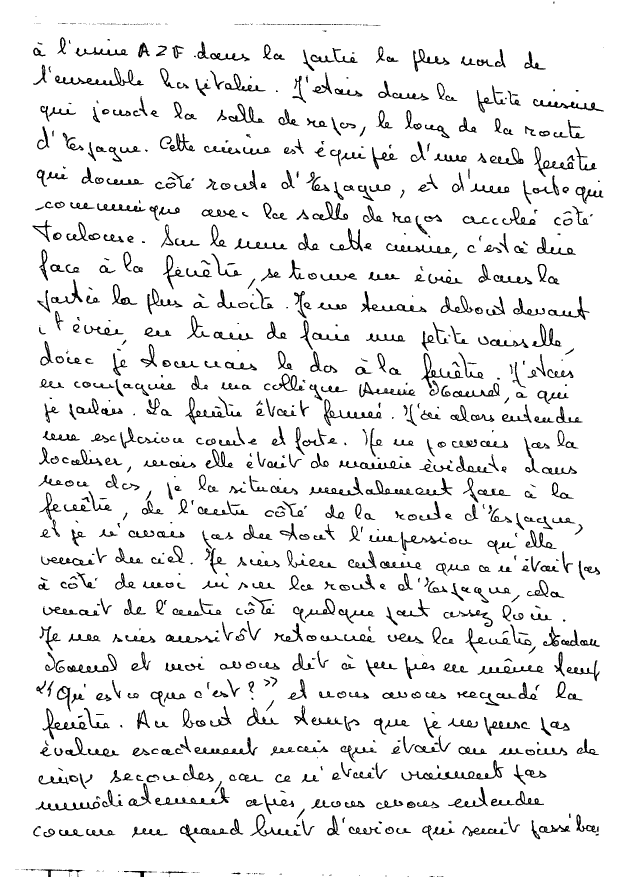 à l'usine AZF dans la partie la plus nord de
l'ensemble hospitalier. J'étais dans la petite cuisine
qui jouxte la salle de repos, le long de la route
d'Espagne. Cette cuisine est équipée d'une seule fenêtre
qui donne côté route d'Espagne, et d'une porte qui
communique avec la salle de repos accolée côté
Toulouse. Sur le mur de cette cuisine, c'est à dire
face à la fenêtre, se trouve un évier dans la
partie la plus à droite. Je me tenais debout devant
l'évier, en train de faire une petite vaisselle,
donc je tournais le dos à la fenêtre. J'étais
en compagnie de ma collègue Annie , à qui
je parlais. La fenêtre était fermée. J'ai alors entendu
une explosion courte et forte. Je ne pouvais pas la
localiser, mais elle était de manière évidente dans
mon dos, je la situais mentalement face à la
fenêtre, de l'autre côté de la route d'Espagne,
et je n'avais pas du tout l'impression qu'elle
venait du ciel. Je suis bien certaine que ce n'était pas
à côté de moi ni sur la route d'Espagne, cela
venait de l'autre côté quelque part assez loin.
Je me suis aussitôt retournée vers la fenêtre, Madam
et moi avons dit à peu près en même temps
"Qu'est ce que c'est?", et nous avons regardé la
fenêtre. Au bout du temps que je ne peux pas
évaluer exactement mais qui était au moins de
cinq secondes, car ce n'était vraiment pas
immédiatement après, nous avons entendu
comme un grand bruit d'avion qui serait passé bas